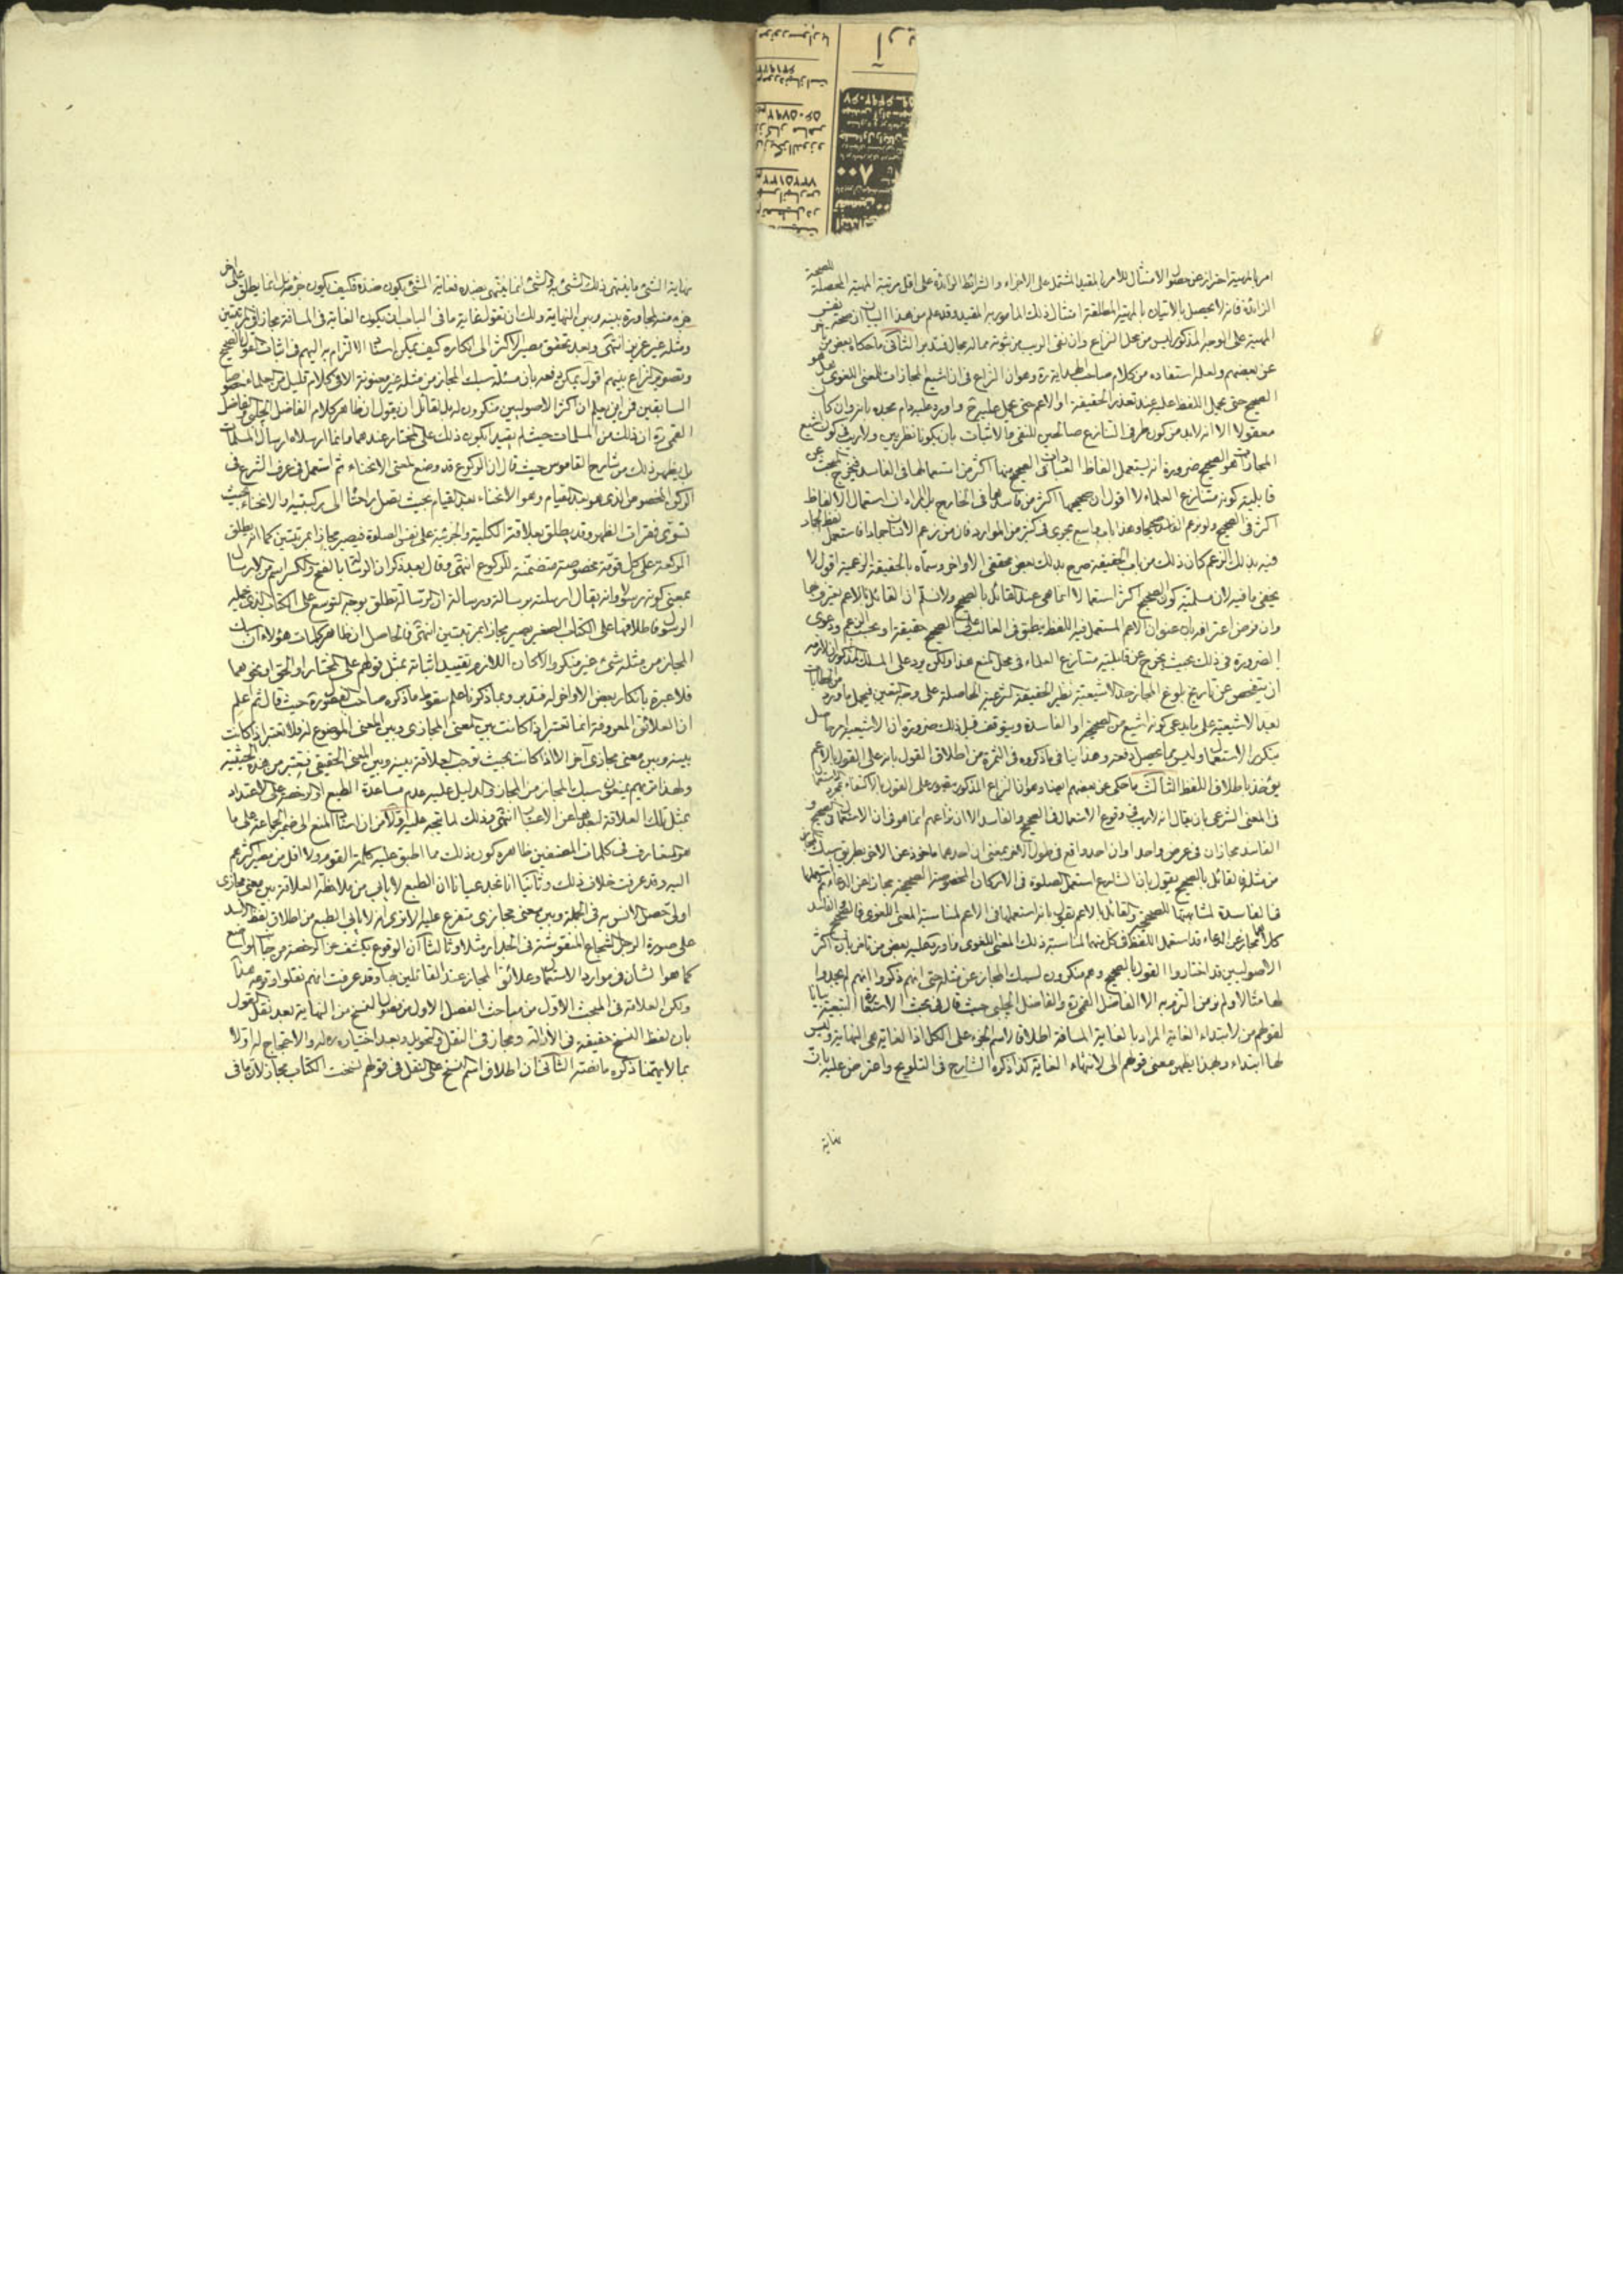 امر بالمهية احتراز عن حصول الامتثال للامر بالمقيد المشتمل على الاجزاء والشرائط الزائدة على اقل مرتبة المهية المحصلة للصحة
الزائدة فانه لا يحصل بالاتيان بالمهية المطلقة امتثال ذلك المامور به المقيد وقد علم من هذا البيان ان صحة
المهية على الوجه المذكور ليس من محل النزاع وان نفى الريب من ثبوته مما له مجال فتدبر الثانى ما حكاه بعض
عن بعضهم ولعله استفاده من كلام صاحب الهداية ره وهو ان النزاع فى ان اشيع المجازات للمعنى اللغوى هل هو
الصحيح حتى يحمل اللفظ عليه عند تعذر الحقيقة او الاعم حتى يحمل عليه واورد عليه دام مجده بانه وان كان
معقولا الا انه لابد من كون طرفى التنازع صالحين للنفى والاثبات بان يكونا نظريين ولا ريب فى كون اشيع
المجازات هو الصحيح ضرورة انه يستعمل الفاظ العبادات فى الصحيح منها اكثر من استعمالها فى الفاسد فيخرج المبحث عن
قابلية كونه متنازع العلماء لا اقول ان صحيحها اكثر من فاسدها فى الخارج بل المراد ان استعمال الالفاظ
اكثر فى الصحيح ولو بزعم الفاسد صحيحا وهذا باب واسع يجرى فى كثير من الموارد فان من زعم الانسان جمادا فاستعمل لفظ الجماد
فيه بذلك الزعم كان ذلك من باب الحقيقة صرح بذلك بعض محققى الاواخر وسماه بالحقيقة الزعمية اقول لا
يخفى ما فيه لان مسلمية كون الصحيح اكثر استعمالا انما هى عند القائل بالصحيح ولا نسلم ان القائل بالاعم يعترف بها
وان فرض اعترافه بان عنوان الاعم المستعمل فيه اللفظ ينطبق فى الغالب على الصحيح حقيقة او بحسب الزعم ودعوى
الضرورة فى ذلك بحيث يخرج عن قابلية متنازع العلماء فى محل المنع هذا ولكن يرد على المسلك المذكور ان لازمه
ان يتفحص عن تاريخ بلوغ المجاز حد الاشيعية نظير الحقيقة الشرعية الحاصلة على وجه التعين فيحمل ما ورد من الخطابات
بعد الاشيعية على ما يدعى كونه اشيع من الصحيحة او الفاسدة ويتوقف قبل ذلك ضرورة ان الاشيعية امر حاصل
بتكرر الاستعمال وليس مما يحصل دفعة وهذا ينافى ما ذكروه فى الثمرة من اطلاق القول بانه على القول بالاعم
يؤخذ باطلاق اللفظ الثالث ما حكى عن بعضهم ايضا وهو ان النزاع المذكور متصور على القول بالاكتفاء بمجرد الاستعمال
فى المعنى الشرعى بان يقال انه لا ريب فى وقوع الاستعمال فى الصحيح والفاسد الا ان نزاعهم انما هو فى ان الاستعمال فى الصحيح و
الفاسد مجازان فى عرض واحد او ان احد واقع فى طول الاخر بمعنى ان احدهما ماخوذ عن الاخر بطريق سبك المجاز
من مثله فالقائل بالصحيح يقول بان الشارع استعمل الصلوة فى الاركان المخصوصة الصحيحة مجازا عن الدعاء ثم استعملها
فى الفاسدة لمشابهتها للصحيحة والقائل بالاعم يقول بانه استعملها فى الاعم لمناسبة المعنى اللغوى فالصحيح والفاسد
كلاهما مجاز عن الدعاء قد استعمل اللفظ فى كل منهما لمناسبة ذلك المعنى اللغوى واورد عليه بعض من تاخر بان اكثر
الاصوليين قد اختاروا القول بالصحيح وهم منكرون لسبك المجاز عن مثله حتى انهم ذكروا انهم لم يجدوا
لها مثالا ولم نر من التزم به الا الفاضل القمى ره والفاضل الچلبى حيث قال فى بحث الاستعارة التبعية بيانا
لقولهم من لابتداء الغاية المراد بالغاية المسافة اطلاقا لاسم الجزء على الكل اذ الغاية هى النهاية وليس
لها ابتداء وبهذا يظهر معنى قولهم الى لانتهاء الغاية كذا ذكره الشارح فى التلويح واعترض عليه بان
نهاية
نهاية الشئ ما ينتهى ذلك الشئ به والشئ انما ينتهى بضده فغاية الشئ يكون ضده فكيف يكون جزء منه بل انما يطلق على اخر
جزء منه لمجاورة بينه وبين النهاية ولك ان تقول بغاية ما فى الباب ان يكون الغاية فى المسافة مجازا فى المرتبتين
ومثله غير عزيز انتهى وبعد تحقق مصير الاكثر الى انكاره كيف يمكن اسناد الالتزام به اليهم فى اثبات القول بالصحيح
وتصوير النزاع بينهم اقول يمكن دفعه بان مسئلة سبك المجاز من مثله غير معنونة الا فى كلام قليل من العلماء خصوصا
السابقين فمن اين يعلم ان اكثر الاصوليين منكرون له بل لقائل ان يقول ان ظاهر كلام الفاضل الچلبى والفاضل
القمى ره ان ذلك من المسلمات حيث لم يقيدا بكون ذلك على المختار عندهما وانما ارسلاه ارسال المسلمات
بل يظهر ذلك من شارح القاموس حيث قال ان الركوع قد وضع لمعنى الانحناء ثم استعمل فى عرف الشرع فى
الركن المخصوص الذى هو بعد القيام وهو الانحناء بعد القيام بحيث يصل راحتاه الى ركبتيه والانحناء بحيث
تستوى فقرات الظهر وقد يطلق بعلاقة الكلية والجزئية على نفس الصلوة فيصير مجازا بمرتبتين كما انه يطلق
الركعة على كل قومة مخصوصة متضمنة للركوع انتهى وقال بعد ذكر ان الرسالة بالفتح والكسر اسم من الارسال
بمعنى كونه رسولا وانه يقال ارسلته برسالة ورسالة ان الرسالة تطلق بوجه التوسع على الكتاب الذى يحمله
الرسول واطلاقها على الكتاب الصغير يصير مجازا بمرتبتين انتهى والحاصل ان ظاهر كلمات هؤلاء ان سبك
المجاز من مثله شئ غير منكر والا لكان اللازم تقييد اثباته بمثل قولهم على المختار او الحق او نحوهما
فلا عبرة بانكار بعض الاواخر له فتدبر وبما ذكرنا علم سقوط ما ذكره صاحب الفصول ره حيث قال ثم اعلم
ان العلائق المعروفة انما تعتبر اذا كانت بين المعنى المجازى وبين المعنى الموضوع له ولا تعتبر اذا كانت
بينه وبين معنى مجازى آخر الا اذا كانت بحيث توجب العلاقة بينه وبين المعنى الحقيقى فتعتبر من هذه الحيثية
ولهذا تريهم يمنعون سبك المجاز من المجاز والدليل عليه عدم مساعدة الطبع او الرخصة على الاعتداد
بمثل تلك العلاقة لبعدها عن الاعتبار انتهى وذلك لما يتجه عليه اولا من ان اسناد المنع الى ضمير الجماعة على ما
هو المتعارف فى كلمات المصنفين ظاهره كون ذلك مما اطبق عليه كلمة القوم ولا اقل من مصير اكثرهم
اليه وقد عرفت خلاف ذلك وثانيا انا نجد عيانا ان الطبع لا يابى من ملاحظة العلاقة بين معنى مجازى
اولى حصل الانس به فى الجملة وبين معنى مجازى يتفرع عليه الا ترى انه لا يابى الطبع من اطلاق لفظ الاسد
على صورة الرجل الشجاع المنقوشة فى الجدار مثلا وثالثا ان الوقوع يكشف عن الرخصة من جانب الواضع
كما هو الشان فى موارد الاستعمال وعلائق المجاز عند القائلين بها وقد عرفت انهم نقلوا وقوعه هذا
ولكن العلامة فى المبحث الاول من مباحث الفصل الاول من فصول النسخ من النهاية بعد نقل القول
بان لفظ النسخ حقيقة فى الازالة ومجاز فى النقل والتحويل وبعد اختياره له والاحتجاج له اولا
بما لا يهمنا ذكره ما نصه الثانى ان اطلاق اسم النسخ على النقل فى قولهم نسخت الكتاب مجاز لان ما فى